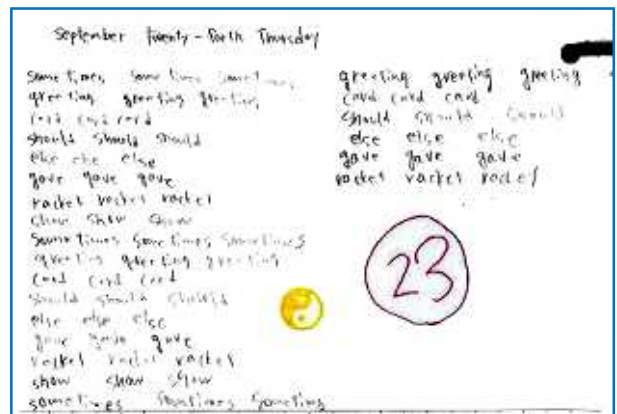 September Twenty-Forth Thursday
sometimes sometimes sometimes
greeting greeting greeting
card card card
should should should
else else else
gave gave gave
racket racket racket
show show show
sometimes sometimes sometimes
greeting greeting greeting
card card card
should should should
else else else
gave gave gave
racket racket racket
show show show
sometimes sometimes sometimes
greeting greeting greeting
card card card
should should should
else else else
gave gave gave
racket racket racket
23